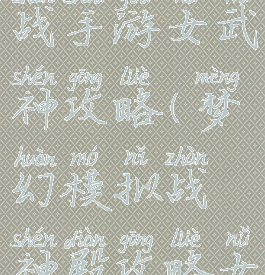 战手游女武
shén gōng lüè mèng
神攻略(梦
huàn mó nǐ zhàn
幻模拟战
shén diàn gōng lüè nǚ
神殿攻略女